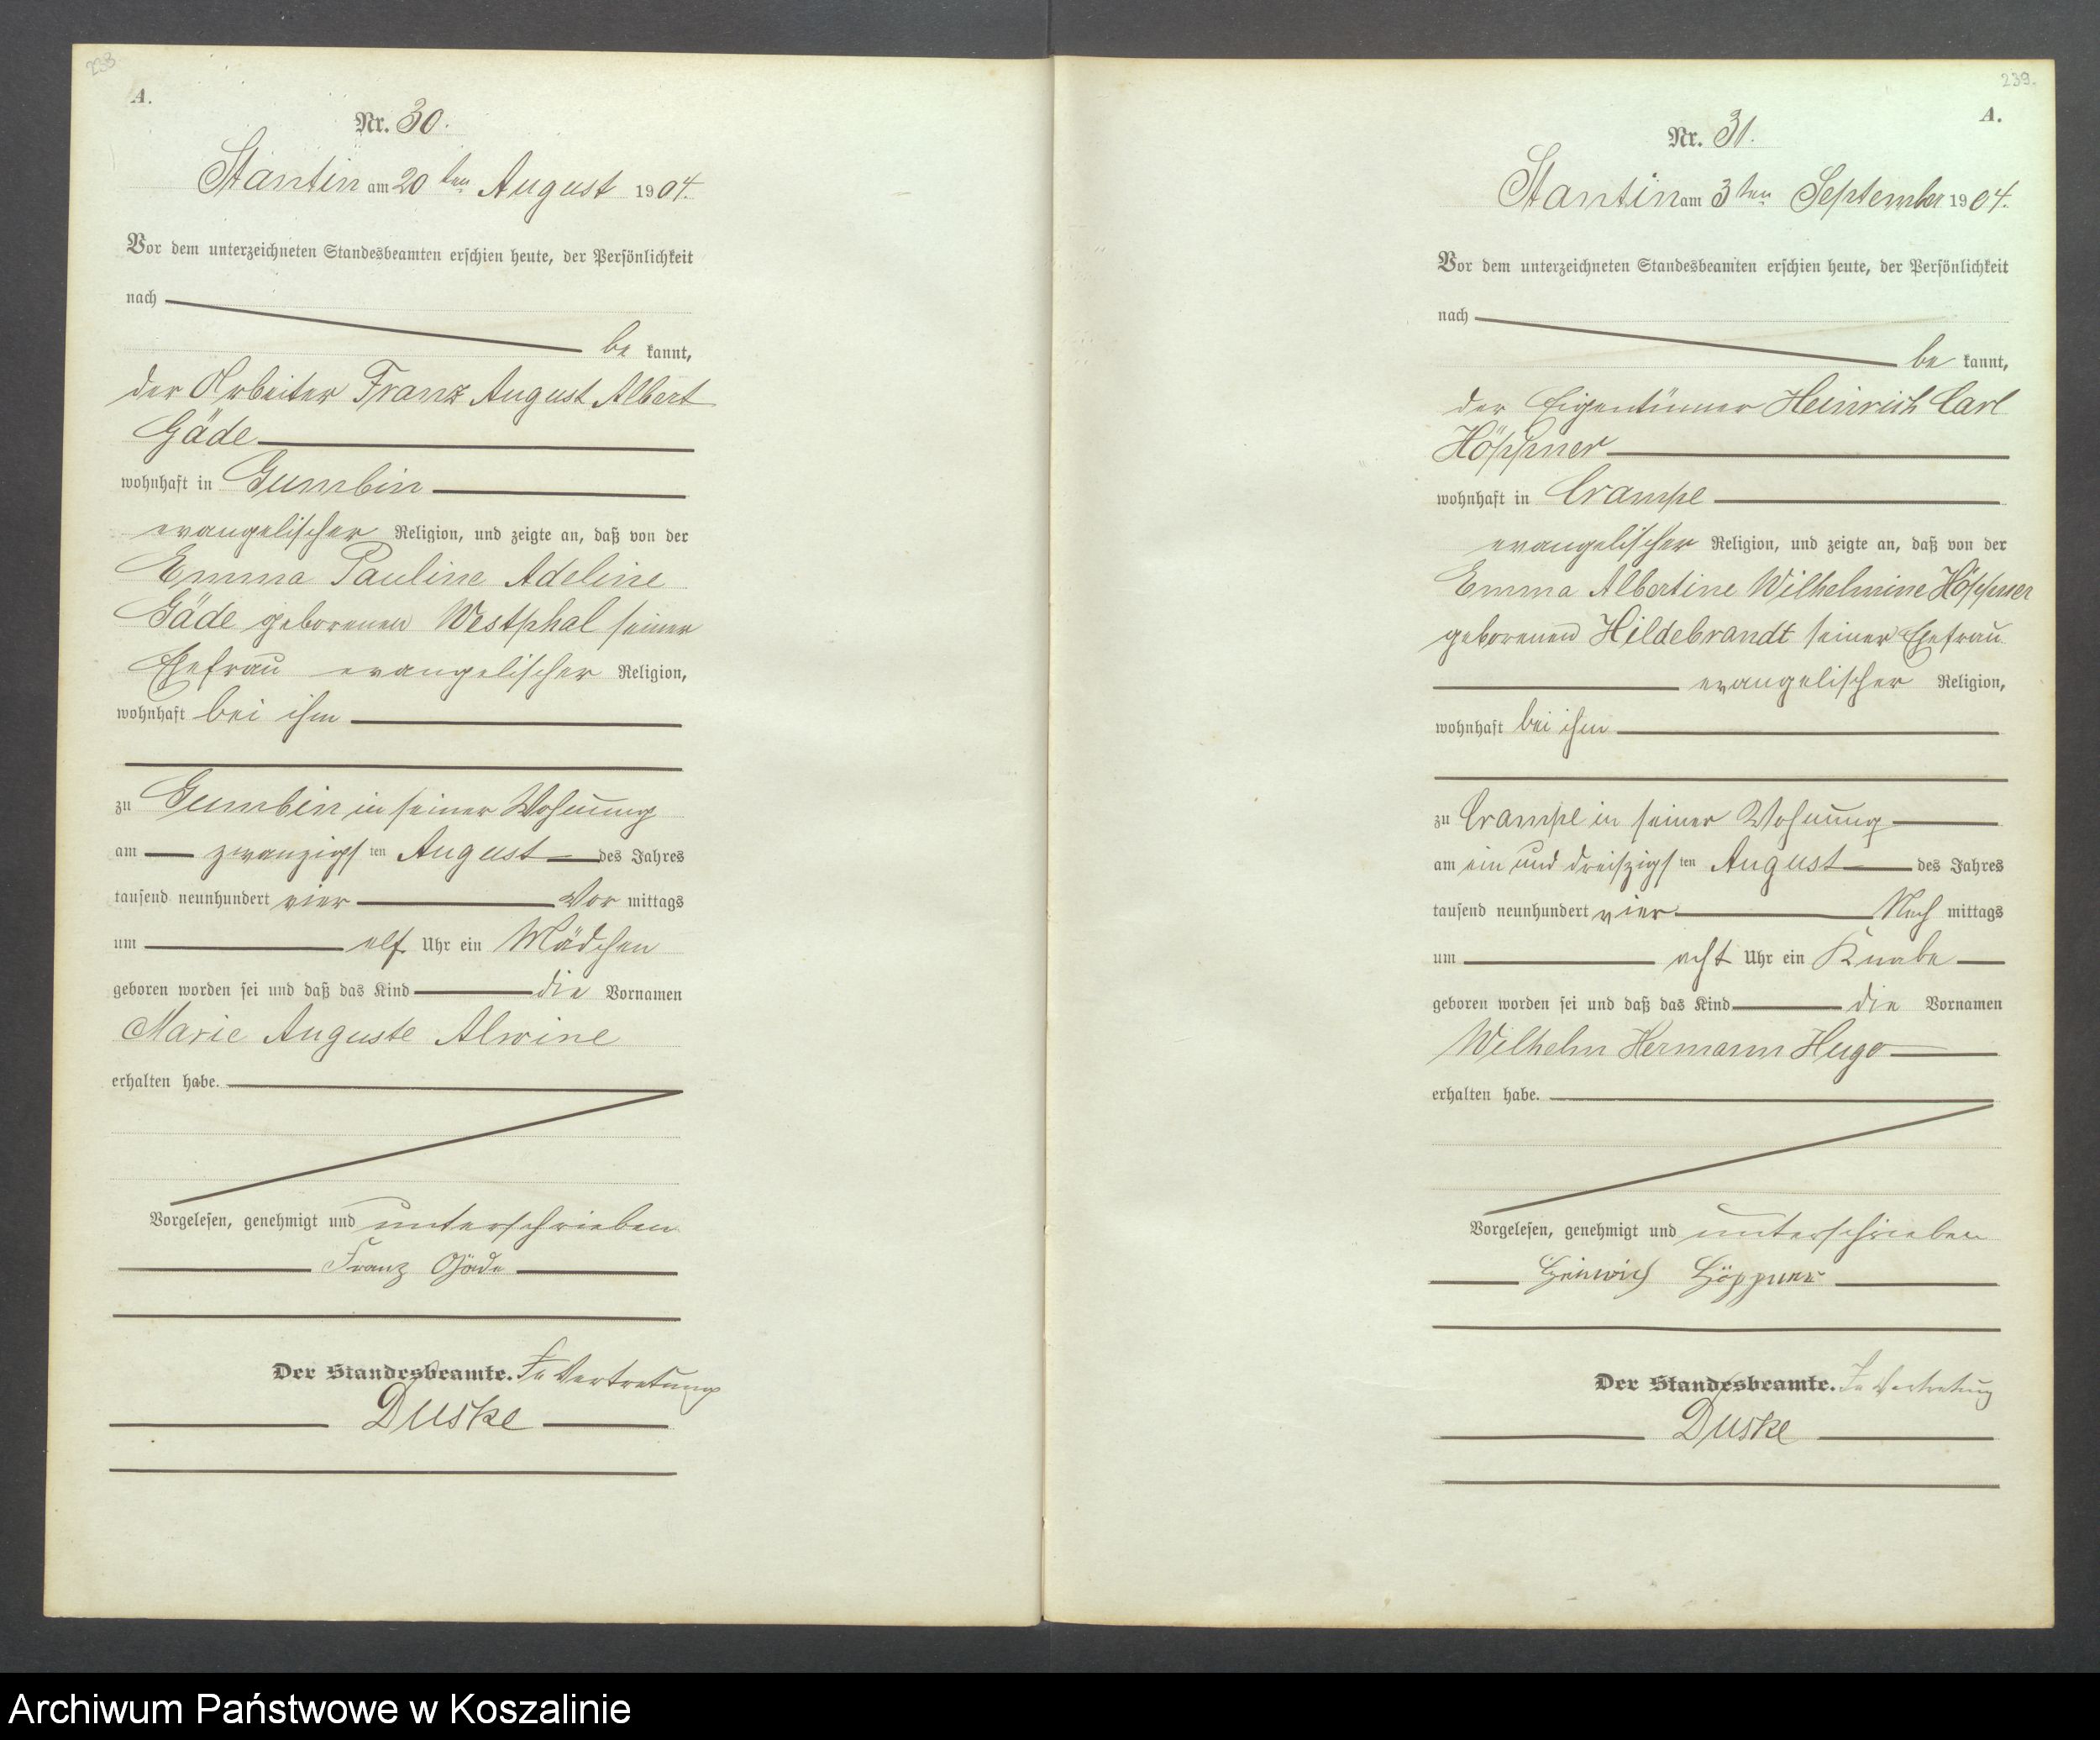 238
A.
Nr. 30.
Stantin am 20ten August 1904.
Vor dem unterzeichneten Standesbeamten erschien heute, der Persönlichkeit
nach
be kannt,
der Arbeiter Franz August Albert
Gäde
wohnhaft in Gumbin
evangelischer Religion, und zeigte an, daß von der
Emma Pauline Adeline
Gäde geborenen Westphal seiner
Ehefrau evangelischer Religion,
wohnhaft bei ihm
zu Gumbin in seiner Wohnung
am zwanzigsten August des Jahres
tausend neunhundert vier Vor mittags
um elf Uhr ein Mädchen
geboren worden sei und daß das Kind die Vornamen
Marie Auguste Alwine
erhalten habe.
Vorgelesen, genehmigt und unterschrieben
Franz Gäde
Der Standesbeamte. In Vertretung
Duske
239.
A.
Nr. 31.
Stantin am 3ten September 1904.
Vor dem unterzeichneten Standesbeamten erschien heute, der Persönlichkeit
nach
be kannt,
der Eigentümer Heinrich Carl
Höppner
wohnhaft in Crampe
evangelischer Religion, und zeigte an, daß von der
Emma Albertine Wilhelmine Höppner
geborenen Hildebrandt seiner Ehefrau
evangelischer Religion,
wohnhaft bei ihm
zu Crampe in seiner Wohnung
am ein und dreiszigsten August des Jahres
tausend neunhundert vier Nach mittags
um acht Uhr ein Knabe
geboren worden sei und daß das Kind die Vornamen
Wilhelm Hermann Hugo
erhalten habe.
Vorgelesen, genehmigt und unterschrieben
Heinrich Höppner
Der Standesbeamte. In Vertretung
Duske
Archiwum Państwowe w Koszalinie